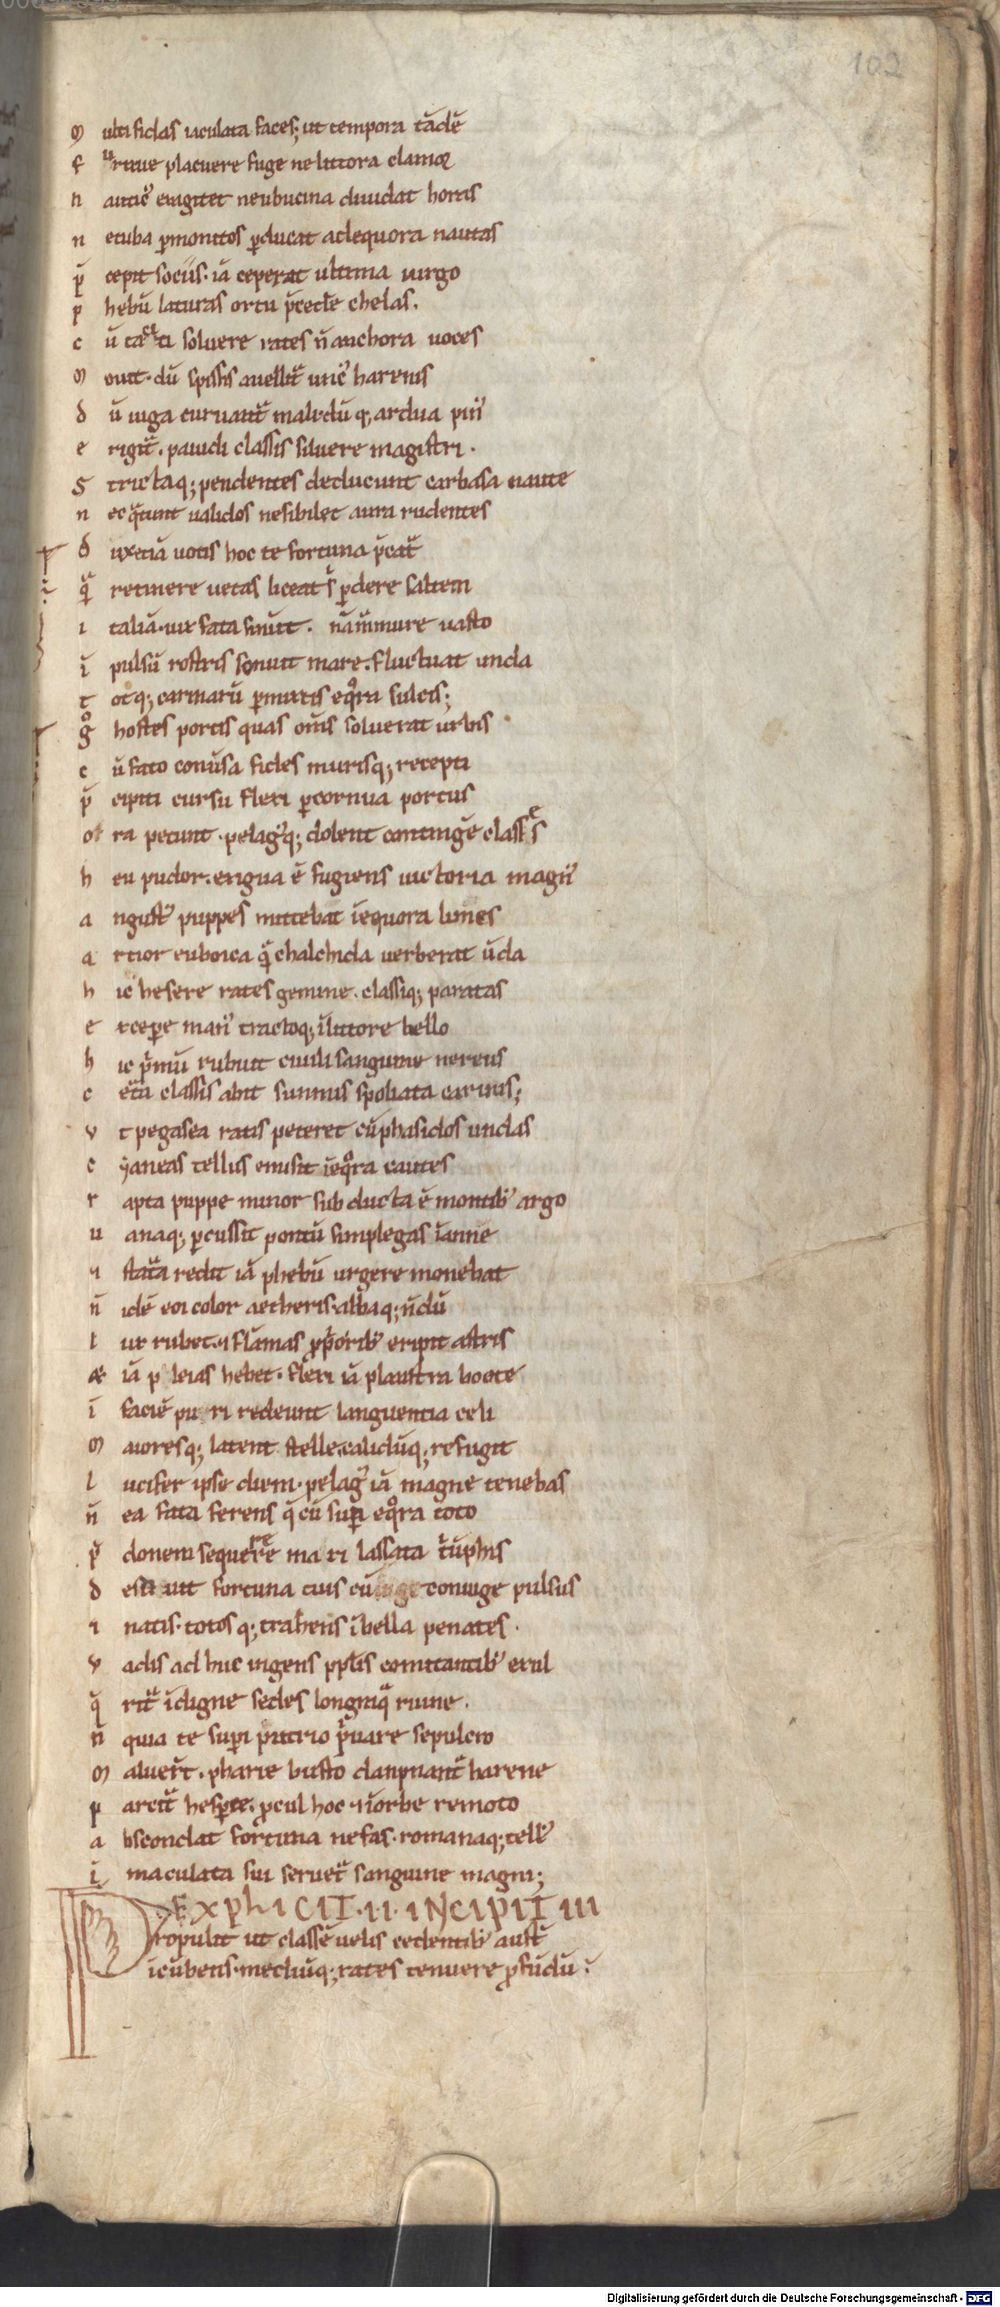 102
m ulti fidas iaculata faces; ut tempora tādē
f urtiue placuere fuge ne littora clamor
n autic᾽ exagitet neu bucina diuidat horas
n e tuba p̄monitos p̄ducat ad equora nautas
p̄ cepit sociis. iā ceperat ultima uirgo
p hebū laturas ortu p̄cedē chelas.
c ū tacati soluere rates n̄ anchora uoces
m ouit. dū spissis auellit᾽ unc᾽ harenis
d ū iuga curuant᾽ mali. dū q; ardua pin᾽
e rigit᾽. pauidi classis siluere magistri.
S trictaq; pendentes deducunt carbasa naute
n ec q̄tiunt ualidos ne sibilet aura rudentes
d ux etiā uotis hoc te fortuna p̄cat᾽
q̄ retinere uetas liceat s᾽ p̄dere saltem
i taliā. uix fata sinūt. nā murmure uasto
ī pulsū rostris sonuit mare. fluctuat unda
t otq; carinarū p̄mixtis eq̊ra sulcis;
g̊ hostes portis quas om̄is soluerat urbis
c ū fato conuersa fides murisq; recepti
p̄ cipiti cursu flexi p̄ cornua portus
o ra petunt. pelag᾽q; dolent contingē classes
h eu pudor. exigua ē fugiens uictoria magn᾽
a ngust᾽ puppes mittebat ī equora limes
a rtior euboica q̄ chalcida uerberat ūda
h ic hesere rates gemine. classiq; paratas
e xcepe man᾽ tractoq; ī littore bello
h ic p᾽mū rubuit ciuili sanguine nereus
c et̄a classis abit summis spoliata carinis;
v t pegasea ratis peteret cū phasidos undas
c yaneas tellus emisit ī eq̊ra cautes
r apta puppe minor subducta ē montib᾽ argo
u anaq; p̄cussit pontū simplegas īanne
ı statura redit iā phebū urgere monebat
n̄ idē eoi color aetheris. albaq; n̄dū
l ux rubet. ı flāmas p̄p̄orib᾽ eripit astris
& iā pleias hebet. flexi iā plaustra boote
ī faciē puri redeunt languentia celi
m aioresq; latent stelle. calidūq; refugit
l ucifer ipse diem. pelag᾽ iā magne tenebas
n̄ ea fata ferens q̄ cū sup̄ eq̊ra toto
p̄ donem sequere mari lassata t᾽ūphis
d esciuit fortuna tuis cū coniuge pulsus
ı natis. totos q; trahens ī bella penates.
v adis adhuc ingens pp̄lis comitantib᾽ exul
q̄ rit᾽ īdigne sedes longinq᾽ ruine.
n̄ quia te sup̄i patrio p᾽uare sepulcro
m aluer̄t. pharie busto dampnant᾽ harene
p arcit᾽ hesperie. p̄cul hoc. ı ī orbe remoto
a bscondat fortuna nefas. romanaq; tell᾽
ī maculata sui seruet᾽ sanguine magni;
EXPLICIT II INCIPIT III
Propulit ut classē uelis cedentib᾽ aust᾽
icūbens. mediūq; rates tenuere p̄fūdū.
Digitalisierung gefördert durch die Deutsche Forschungsgemeinschaft - DFG